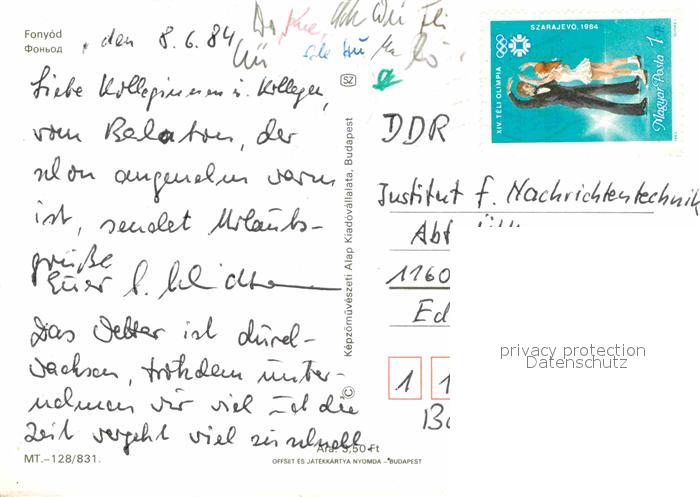 Fonyód
Фоньод
, den 8.6.84
Liebe Kolleginnen u. Kollegen,
vom Balaton, der
schon angenehm warm
ist, sendet Urlaubs-
grüße
Euer
Das Wetter ist durch-
wachsen, trotzdem unter-
nehmen wir viel und die
Zeit vergeht viel zu schnell.
MT.–128/831.
Ára: 3,50 Ft
OFFSET ÉS JÁTÉKKÁRTYA NYOMDA – BUDAPEST
SZ
Képzőművészeti Alap Kiadóvállalata, Budapest
©
SZARAJEVO, 1984
XIV. TÉLI OLIMPIA
1 Ft
Magyar Posta
DDR
Institut f. Nachrichtentechnik
Abt
1160
Ed
1 1
privacy protection
Datenschutz